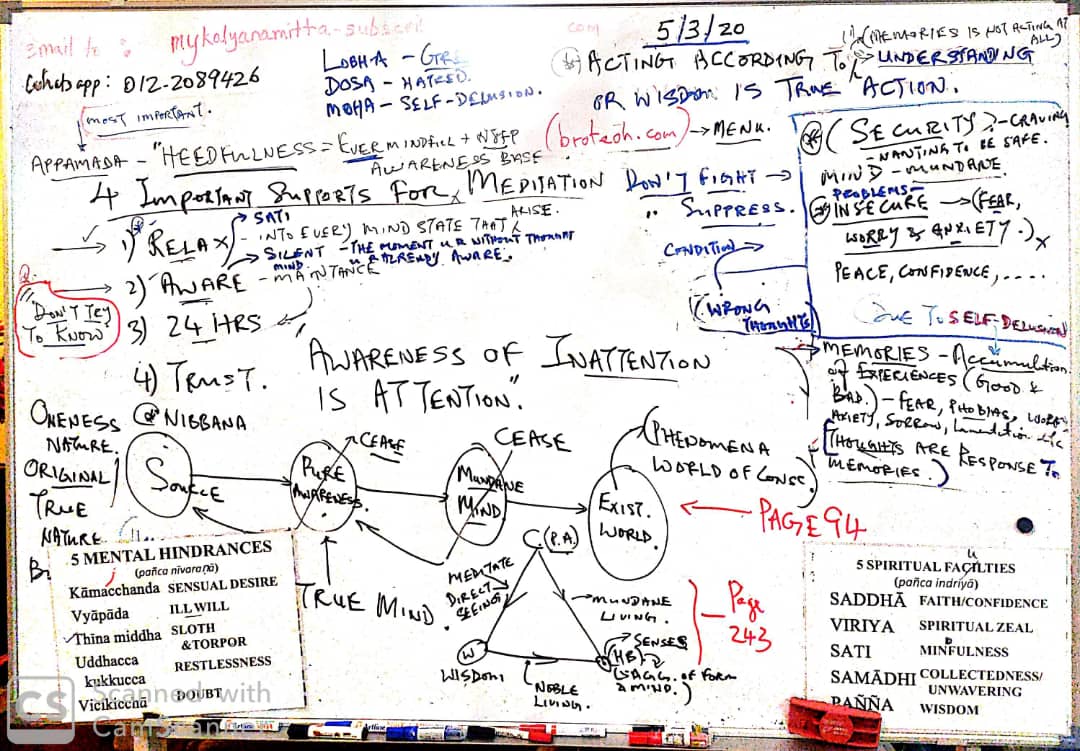 Email to : mykalyanamitta-subscri
com
5/3/20
(MEMORIES IS NOT ACTING AT ALL)
Whatsapp: 012-2089426
LOBHA -
DOSA - HATRED.
MOHA - SELF-DELUSION.
ACTING ACCORDING TO UNDERSTANDING
OR WISDOM IS TRUE ACTION.
(MOST IMPORTANT.
(brotech.com) → MENU.
APPAMADA - "HEEDFULNESS = EVER MINDFUL +
AWARENESS BASE
4 IMPORTANT SUPPORTS FOR MEDITATION
DON'T FIGHT →
" SUPPRESS.
CONDITION →
(WRONG
THOUGHTS)
1) RELAX
→ SATI
- INTO EVERY MIND STATE THAT ARISE.
→ SILENT MIND - THE MOMENT U R WITHOUT THOUGHT
U R ALREADY AWARE.
2) AWARE - MAINTANCE
3) 24 HRS
4) TRUST.
"DON'T TRY
TO KNOW"
(SECURITY) - CRAVING
- WANTING TO BE SAFE.
MIND - MUNDANE.
PROBLEMS -
INSECURE → (FEAR,
WORRY & ANXIETY.) x
PEACE, CONFIDENCE, ....
DUE TO SELF-DELUSION
AWARENESS OF INATTENTION
IS ATTENTION."
→ MEMORIES - ACCUMULATION
OF EXPERIENCES (GOOD &
BAD.) - FEAR, PHOBIAS, WORRY
ANXIETY, SORROW, Lamentation etc
[THOUGHTS ARE RESPONSE TO
MEMORIES.)
ONENESS @ NIBBANA
NATURE.
ORIGINAL
TRUE
NATURE
SOURCE
CEASE
PURE
AWARENESS.
CEASE
MUNDANE
MIND
EXIST.
WORLD.
(PHENOMENA
WORLD OF CONSC.)
← PAGE 94
TRUE MIND.
C (P.A.)
MEDITATE
DIRECT
SEEING
- MUNDANE
LIVING.
W
WISDOM
NOBLE
LIVING.
SENSES
(HB)
(5 AGG. OF FORM
& MIND.)
Page
243
5 MENTAL HINDRANCES
(pañca nīvaraṇā)
Kāmacchanda SENSUAL DESIRE
Vyāpāda ILL WILL
Thina middha SLOTH
&TORPOR
Uddhacca RESTLESSNESS
kukkucca
Vicikicchā DOUBT
5 SPIRITUAL FACILTIES
(pañca indriyā)
SADDHĀ FAITH/CONFIDENCE
VIRIYA SPIRITUAL ZEAL
SATI MINFULNESS
SAMĀDHI COLLECTEDNESS/
UNWAVERING
PAÑÑA WISDOM
CS Scanned with
CamScanner